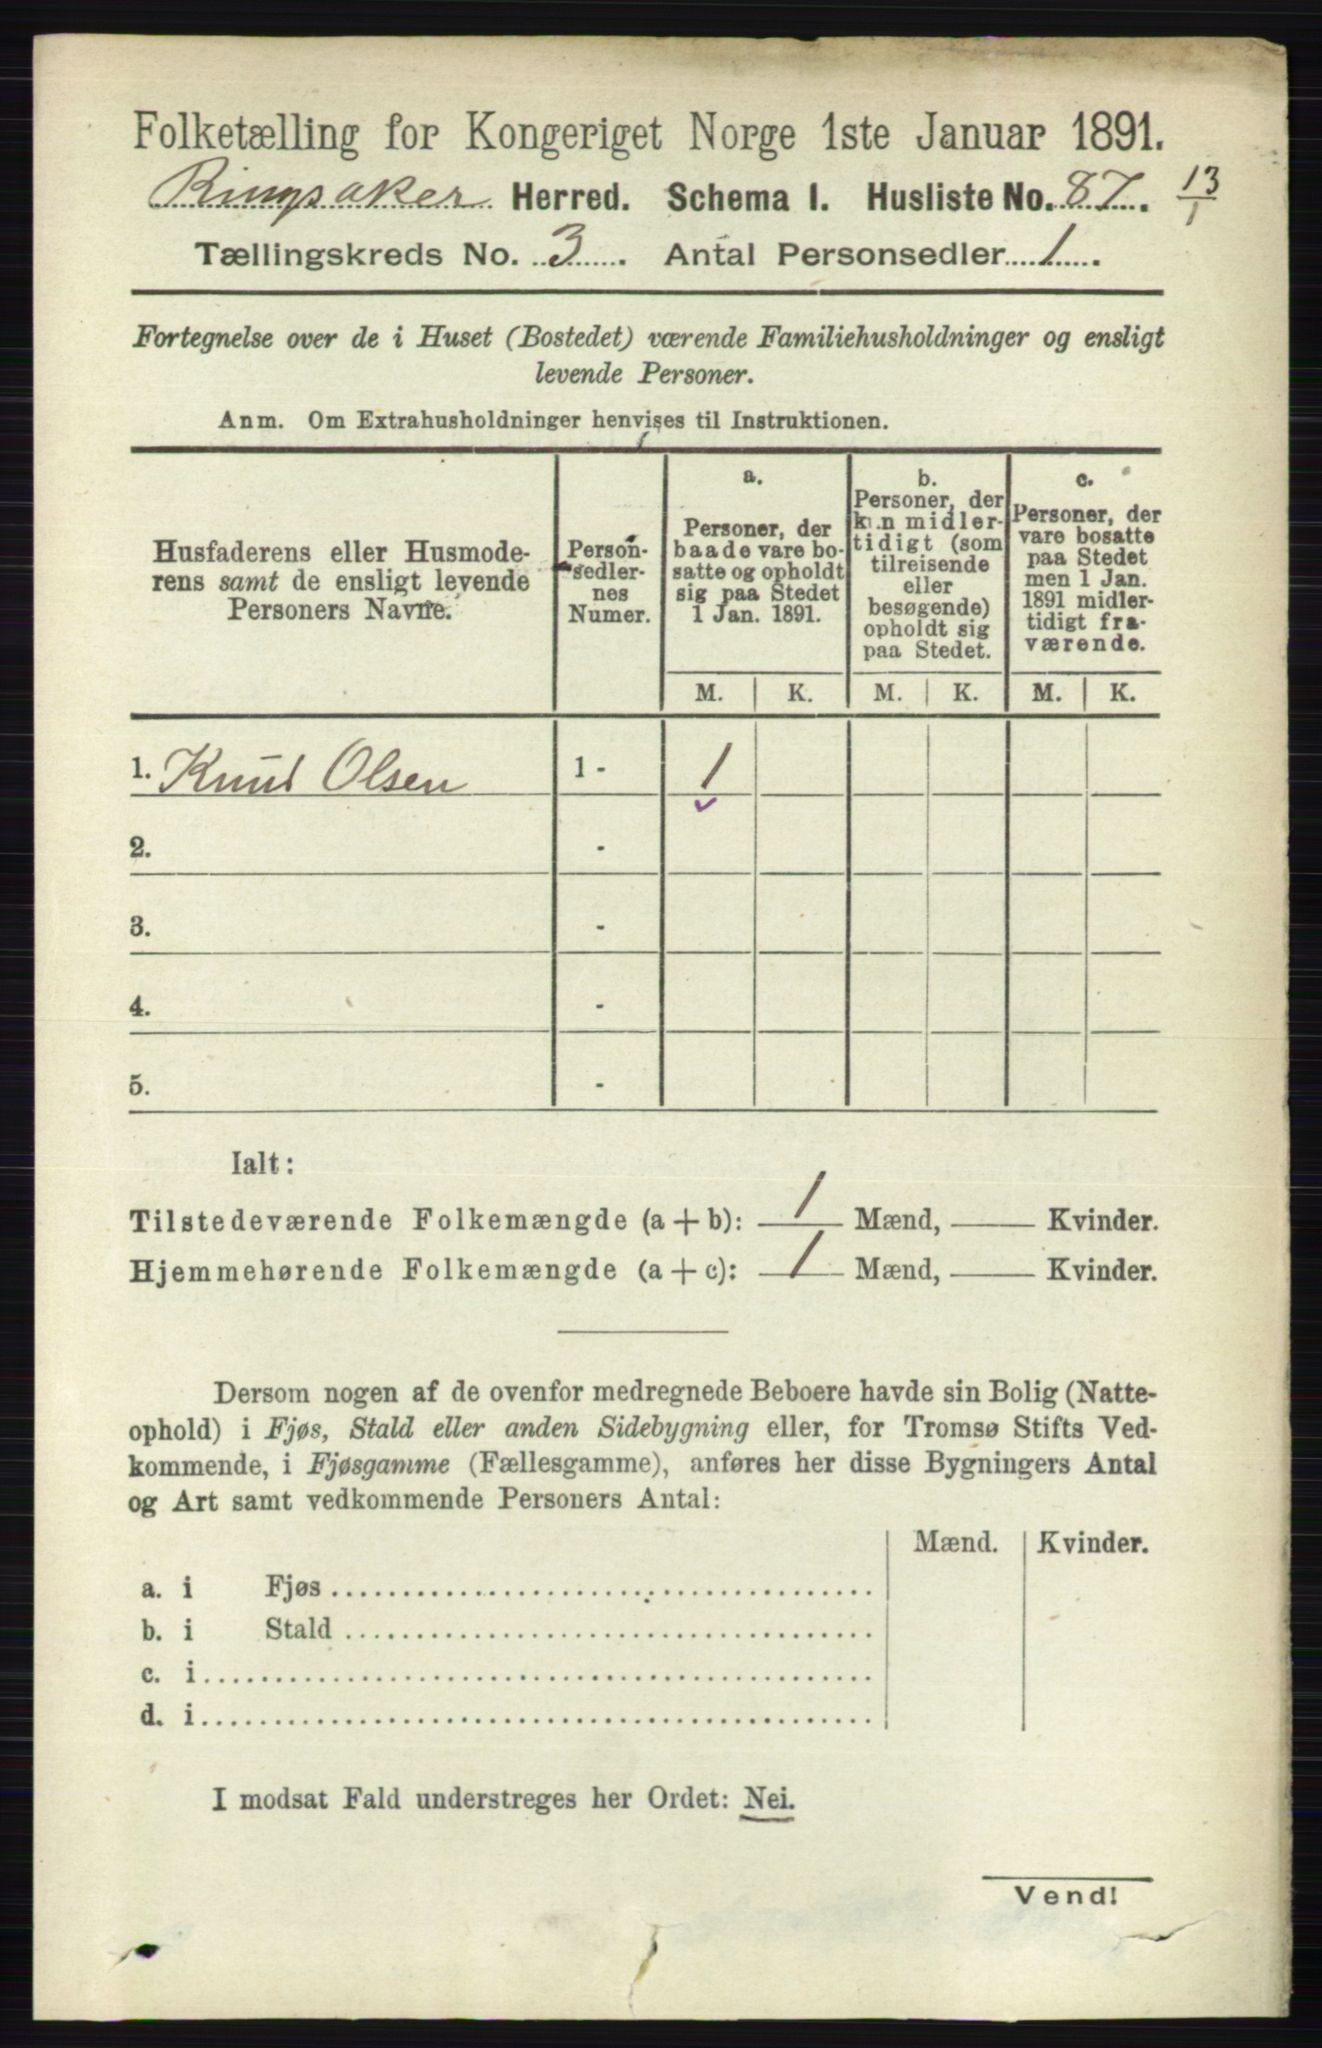 Folketælling for Kongeriget Norge 1ste Januar 1891.
Ringsaker Herred. Schema I. Husliste No. 87. 13/1
Tællingskreds No. 3. Antal Personsedler 1.
Fortegnelse over de i Huset (Bostedet) værende Familiehusholdninger og ensligt
levende Personer.
Anm. Om Extrahusholdninger henvises til Instruktionen.
Husfaderens eller Husmode-
rens samt de ensligt levende
Personers Navne.
Person-
sedler-
nes
Numer.
a.
Personer, der
baade vare bo-
satte og opholdt
sig paa Stedet
1 Jan. 1891.
b.
Personer, der
kun midler-
tidigt (som
tilreisende
eller
besøgende)
opholdt sig
paa Stedet.
c.
Personer, der
vare bosatte
paa Stedet
men 1 Jan.
1891 midler-
tidigt fra-
værende.
M. K. M. K. M. K.
1. Knud Olsen 1 - 1
2. -
3. -
4. -
5. -
Ialt:
Tilstedeværende Folkemængde (a + b): 1 Mænd, — Kvinder.
Hjemmehørende Folkemængde (a + c): 1 Mænd, — Kvinder.
Dersom nogen af de ovenfor medregnede Beboere havde sin Bolig (Natte-
ophold) i Fjøs, Stald eller anden Sidebygning eller, for Tromsø Stifts Ved-
kommende, i Fjøsgamme (Fællesgamme), anføres her disse Bygningers Antal
og Art samt vedkommende Personers Antal:
Mænd. Kvinder.
a. i Fjøs
b. i Stald
c. i
d. i
I modsat Fald understreges her Ordet: Nei.
Vend!